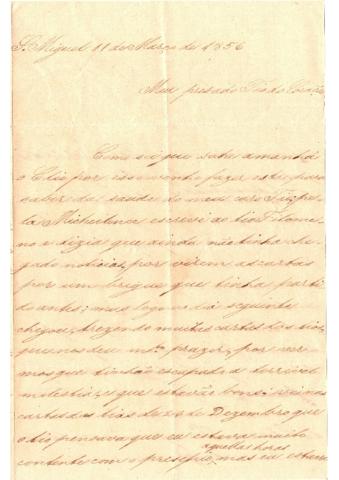 S. Miguel 11 de Março de 1856
Meu presado Tio do Coração
Como sei que sahe amanhã
o Clio por isso venho fazer esta para
saber da saude do meu caro Tio, pe-
la Michaelense escrevi ao tio Filome-
no e dizia que ainda não tinha che-
gado noticias, por virem as cartas
por um brigue que tinha parti-
do antes; mas logo no dia seguinte
chegou, trazendo muitas cartas dos tios,
que nos deu mto. prazer, por ver-
mos que tinhão escapado a terrivel
molestia, e que estavão bons; vi nas
cartas dos tios de 24 de Dezembro que
o tio pensava que eu estava muito
aquellas horas
contente com o presepio, mas eu estava